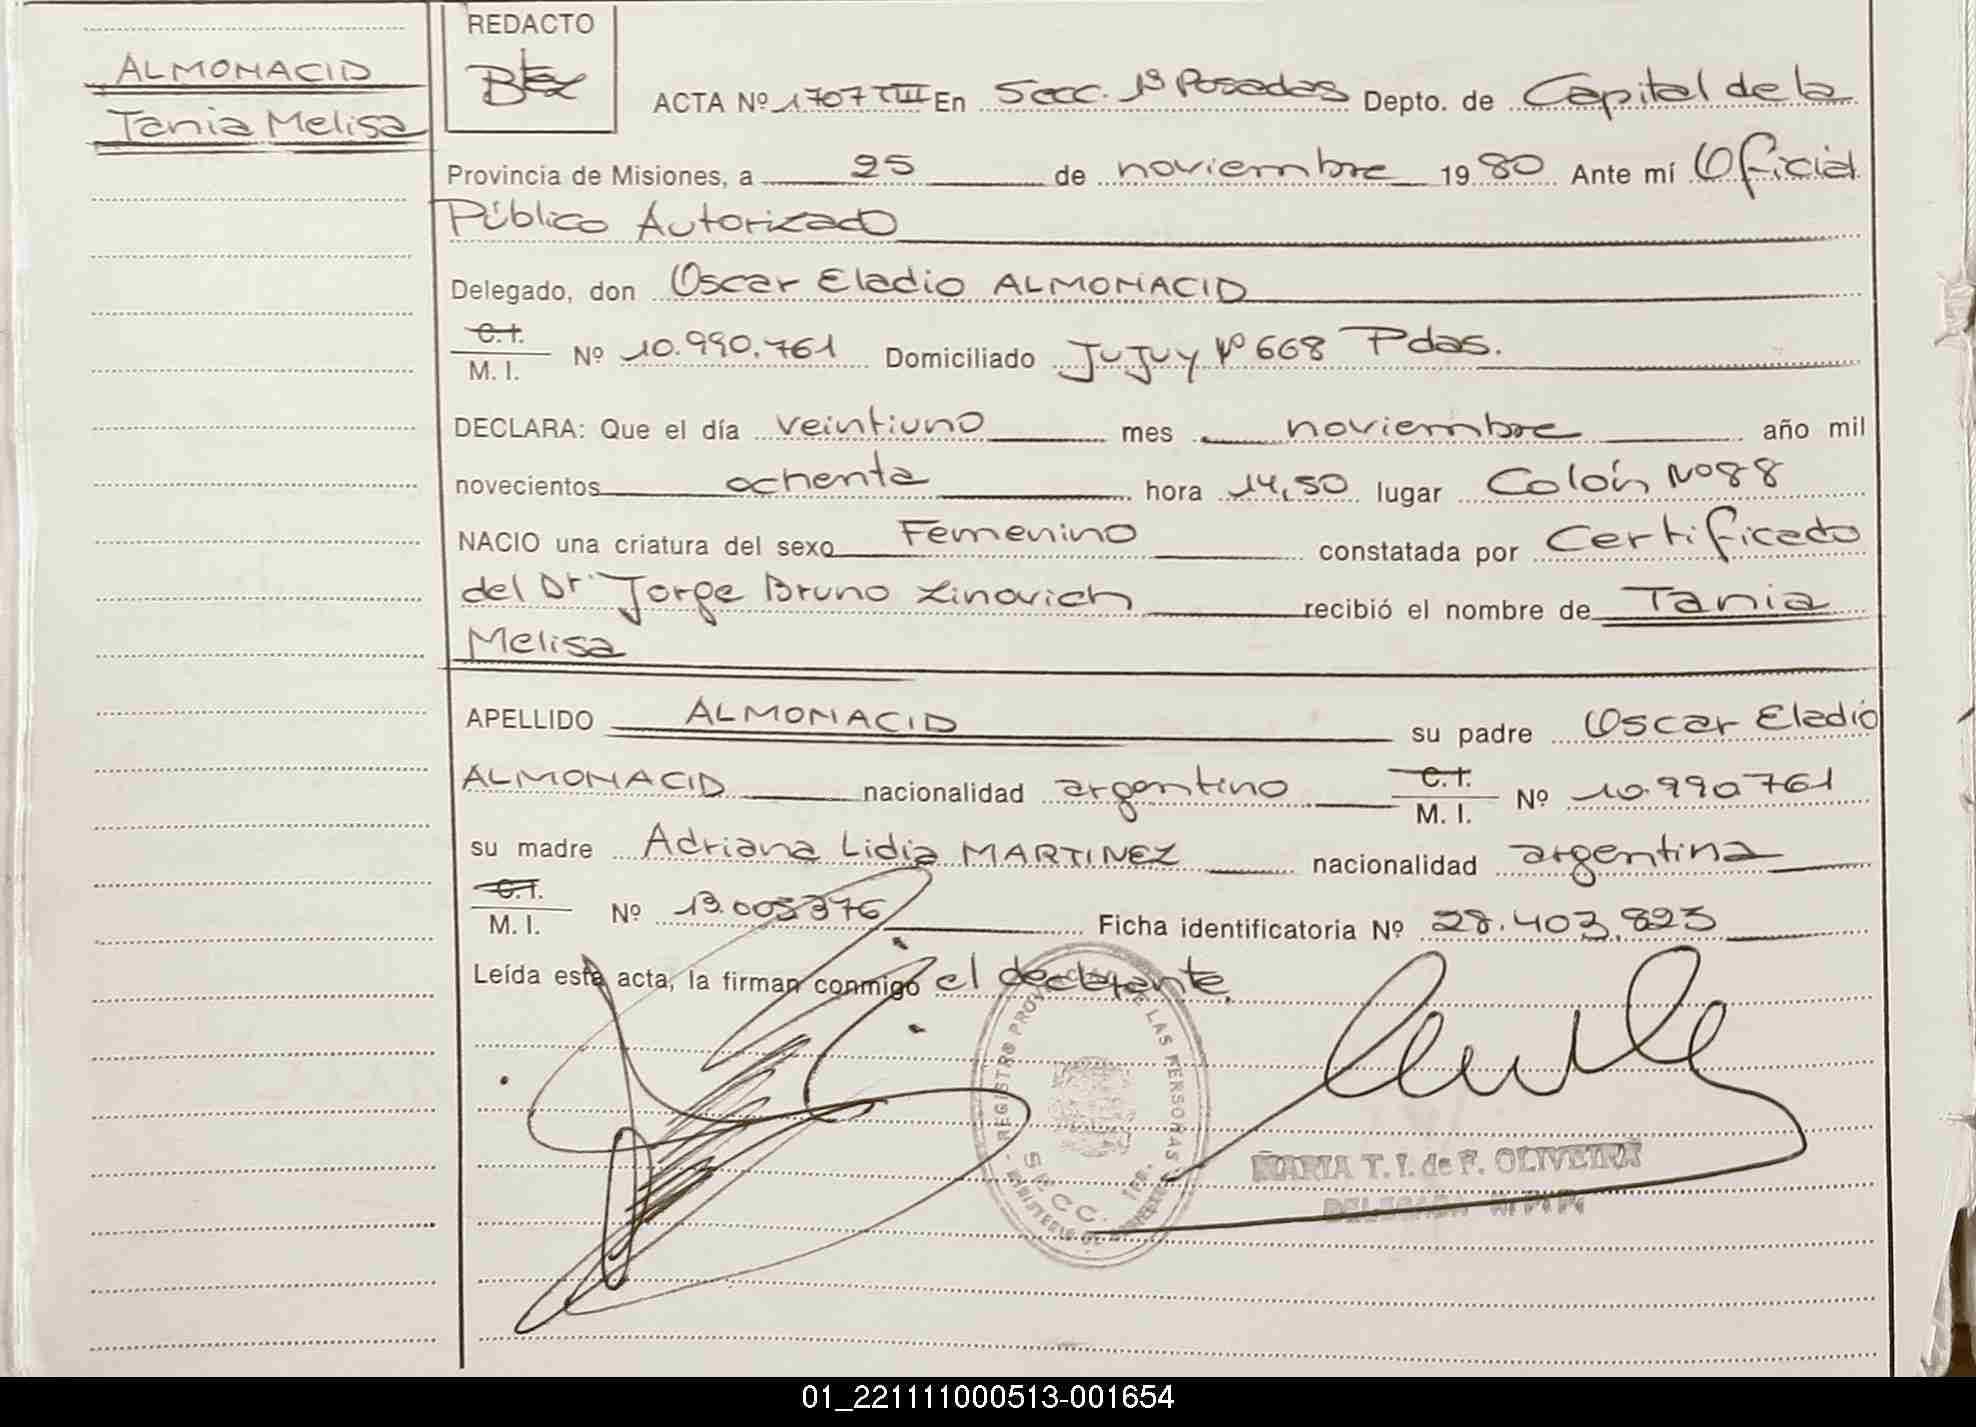 ALMONACID
Tania Melisa
REDACTO
ACTA Nº 1707 TIII En Secc. 1º Posadas Depto. de Capital de la
Provincia de Misiones, a 25 de noviembre 1980 Ante mí Oficial
Público Autorizado
Delegado, don Oscar Eladio ALMONACID
C.I.
M. I. Nº 10.990.761 Domiciliado Jujuy Nº 668 Pdas.
DECLARA: Que el día veintiuno mes noviembre año mil
novecientos ochenta hora 14,50 lugar Colón Nº 88
NACIO una criatura del sexo Femenino constatada por Certificado
del Dr Jorge Bruno Zinovich recibió el nombre de Tania
Melisa
APELLIDO ALMONACID su padre Oscar Eladio
ALMONACID nacionalidad argentino C.I.
M. I. Nº 10.990761
su madre Adriana Lidia MARTINEZ nacionalidad argentina
C.I.
M. I. Nº 13.005376 Ficha identificatoria Nº 28.403.823
Leída esta acta, la firman conmigo el declarante.
REGISTRO PROV DE LAS PERSONAS
SECC. 1ra.
MINISTERIO DE GOBIERNO
MARIA T. I. de F. OLIVEIRA
DELEGADA
01_221111000513-001654